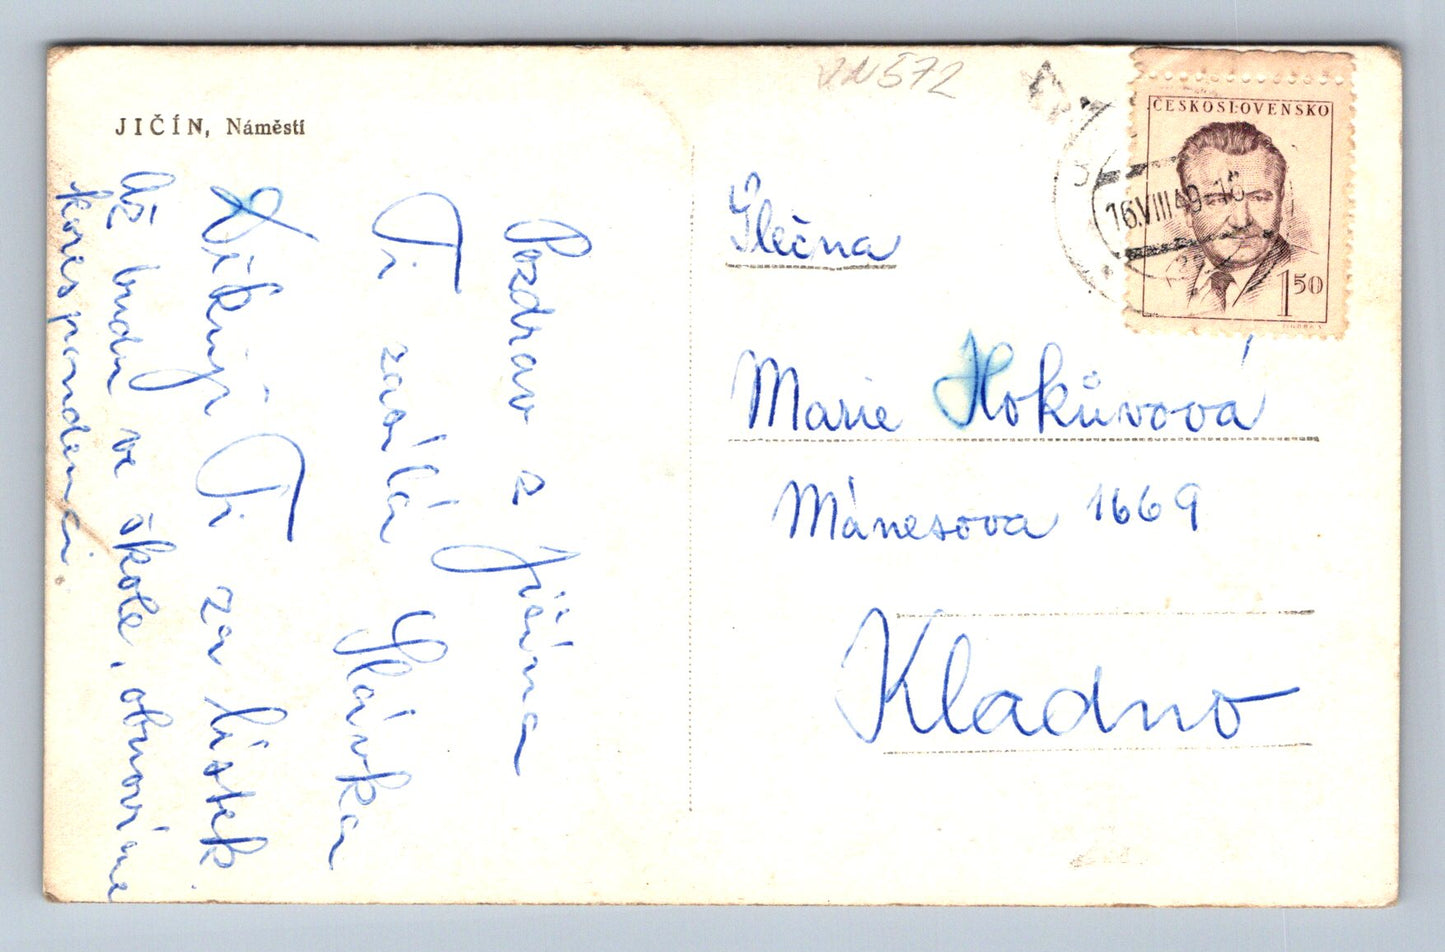 JIČÍN, Náměstí
VN572
ČESKOSLOVENSKO
16.VIII 49-18
1 50
Pozdrav z Jičína
Ti zasílá Slávka
Děkuji Ti za lístek.
Až budu ve škole, obnovíme
korespondenci.
Slečna
Marie Hokůvová
Mánesova 1669
Kladno